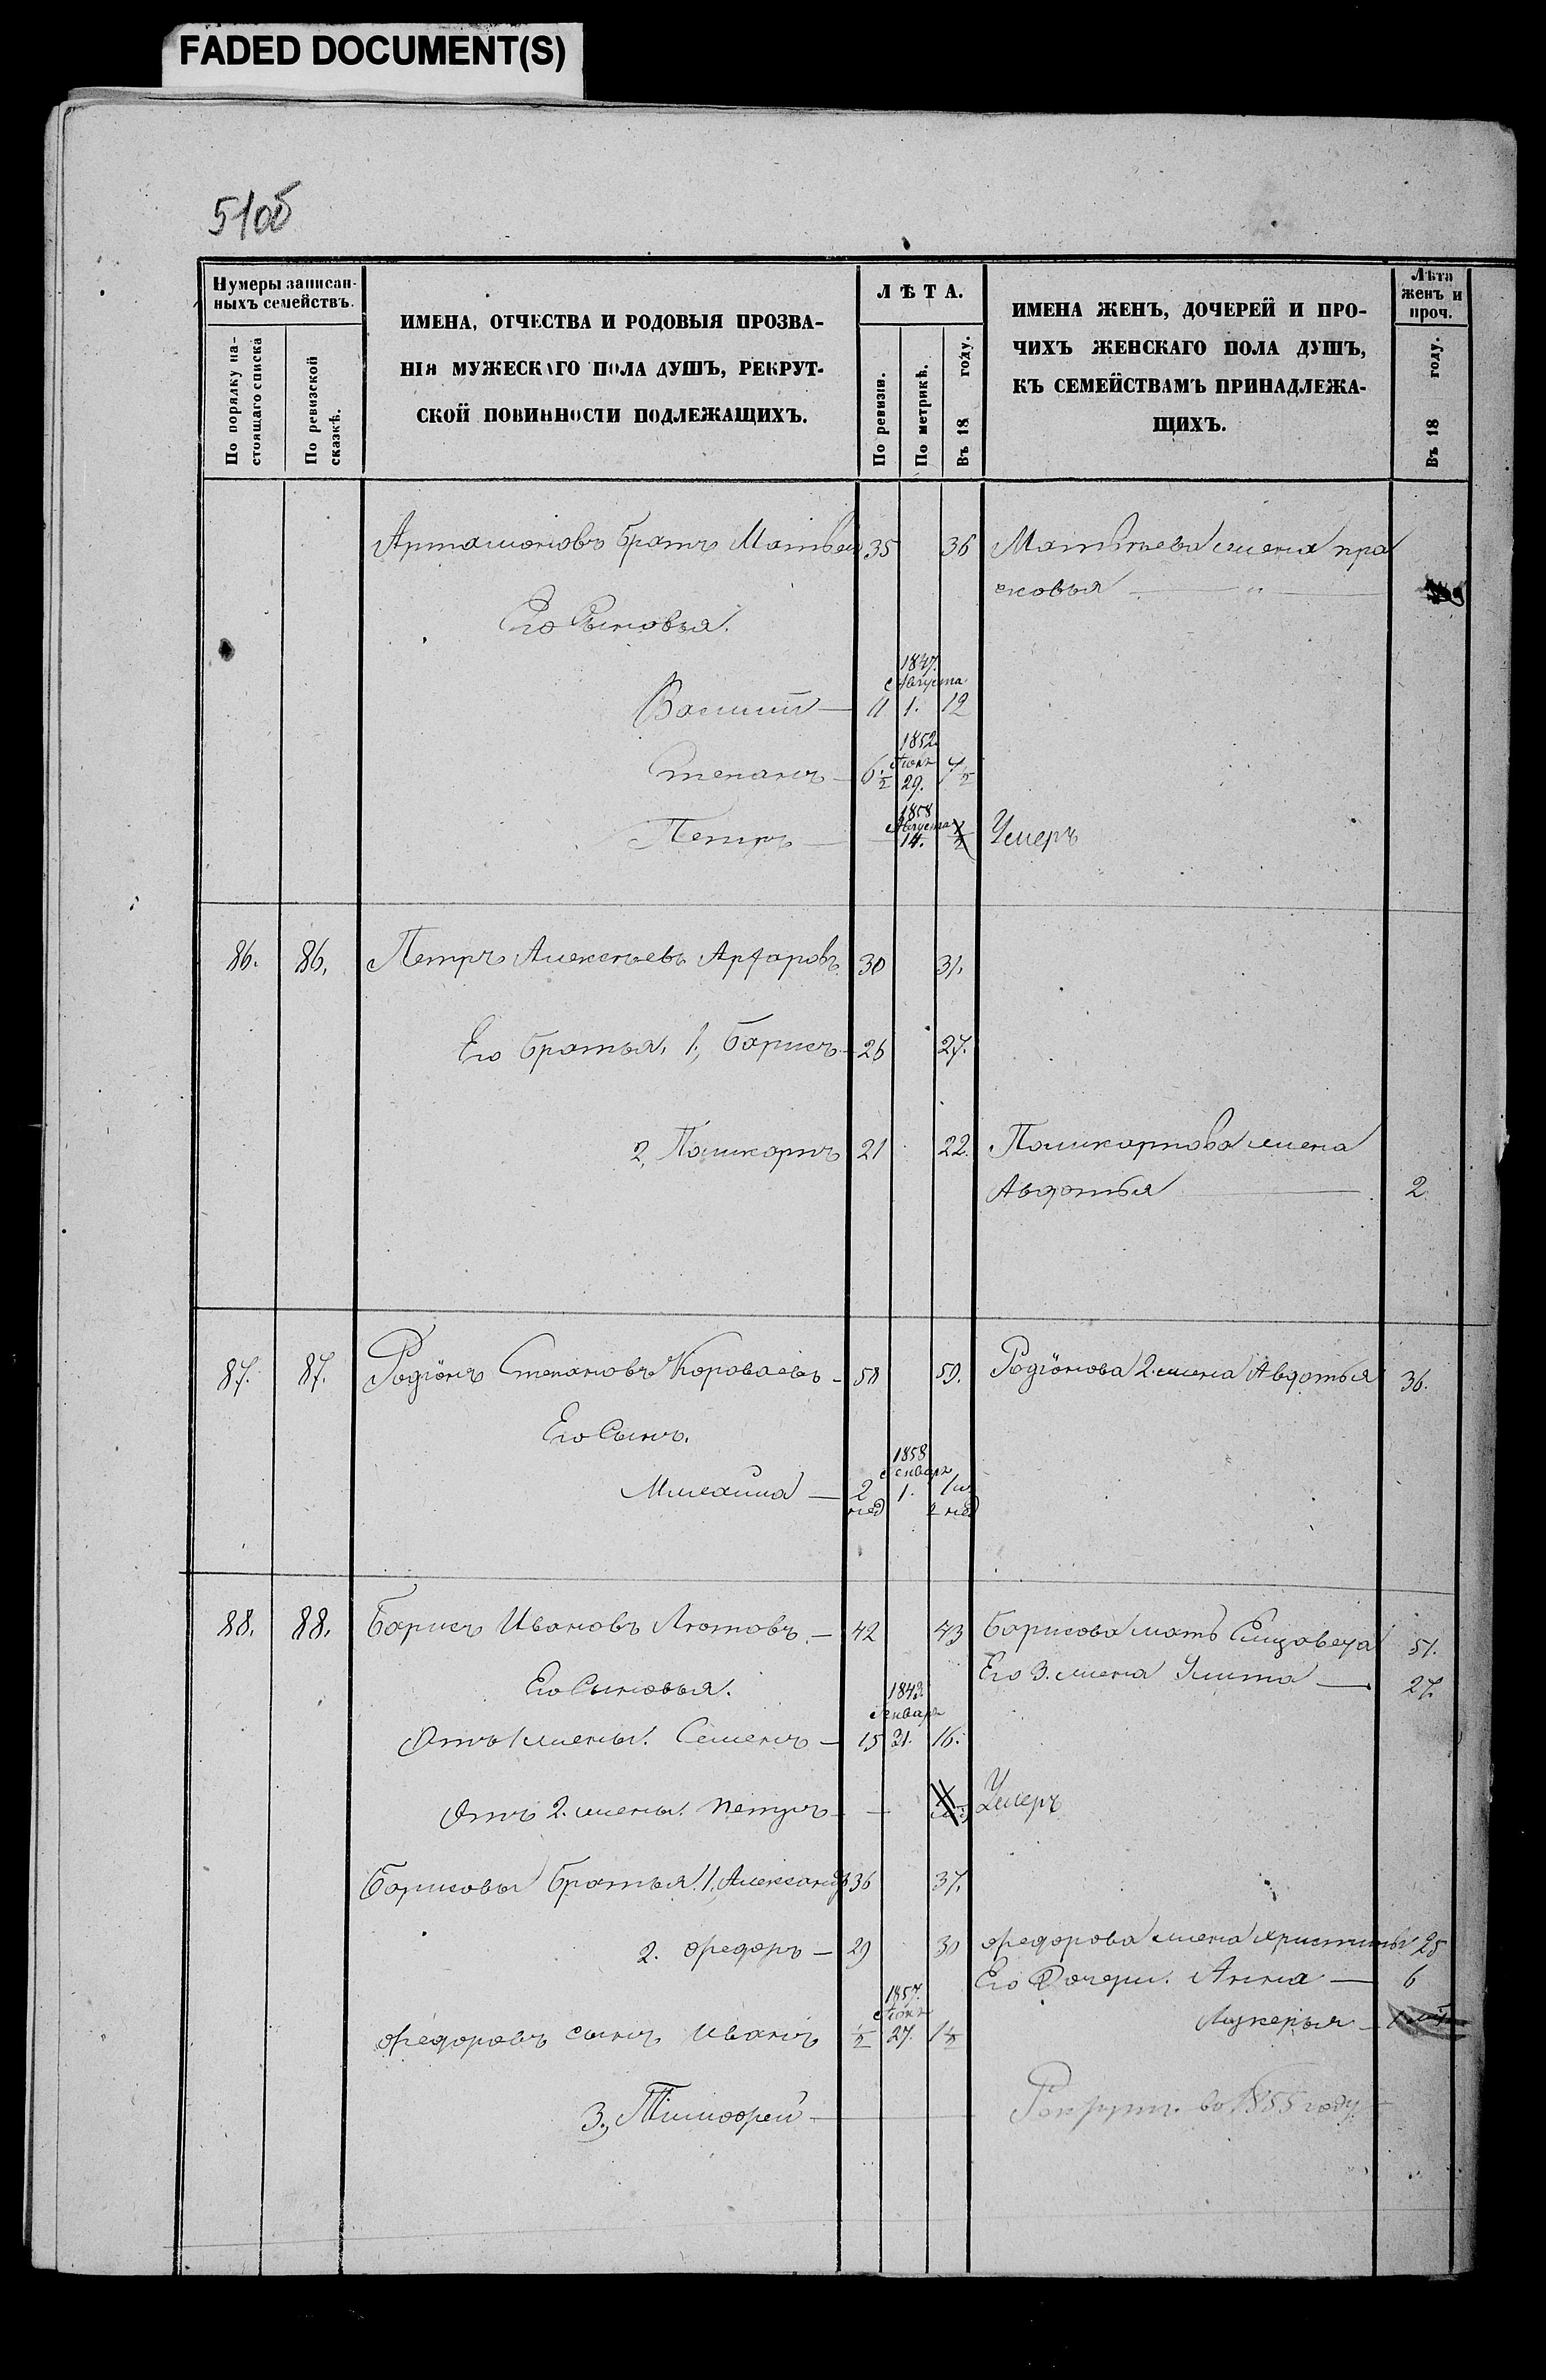 FADED DOCUMENT(S)
51об
Нумеры записан-
ныхъ семействъ.
По порядку на-
стоящаго списка
По ревизской
сказкѣ.
ИМЕНА, ОТЧЕСТВА И РОДОВЫЯ ПРОЗВА-
НІЯ МУЖЕСКАГО ПОЛА ДУШЪ, РЕКРУТ-
СКОЙ ПОВИННОСТИ ПОДЛЕЖАЩИХЪ.
ЛѢТА.
По ревизіи.
По метрикѣ.
Въ 18 году.
ИМЕНА ЖЕНЪ, ДОЧЕРЕЙ И ПРО-
ЧИХЪ ЖЕНСКАГО ПОЛА ДУШЪ,
КЪ СЕМЕЙСТВАМЪ ПРИНАДЛЕЖА-
ЩИХЪ.
Лѣта
женъ и
проч.
Въ 18 году.
Артамоновъ братъ Матвей 35 36 Матвѣева жена пра
сковья
Его Сыновья.
1847.
Августа
Василій — 11 1. 12
1852
Іюня
Степанъ — 6½ 29. 7½
1858
Августа
Петръ — 14. ½ Умеръ
86. 86. Петръ Алексѣевъ 30 31.
Его братья, 1, Барисъ — 26 27.
2, Поликарпъ 21 22. Поликарпова жена
Авдотья 2
87. 87. Родіонъ Степановъ Короваевъ — 58 59. Родіонова 2. жена Авдотья 36.
Его Сынъ.
1858
Генваря
Михаила — 2 1. 1
нед 2 нед
88. 88. Барисъ Ивановъ Лютовъ — 42 43 Барисова мать Елизавета 51.
Его Сыновья. Его 3. жена Улита — 27.
1843
Генваря
Отъ 1 жены. Семенъ — 15 31. 16.
Отъ 2. жены. Петръ — Умеръ
Барисовы братья. 1, Александръ 36 37.
2. Федоръ — 29 30 Федорова жена христинья 28
Его Дочери. Анна — 6
1857.
Іюня
Федоровъ сынъ Иванъ ½ 27. 1½ Лукерья —
3, Тимофей — Рекрут. во 1855 году